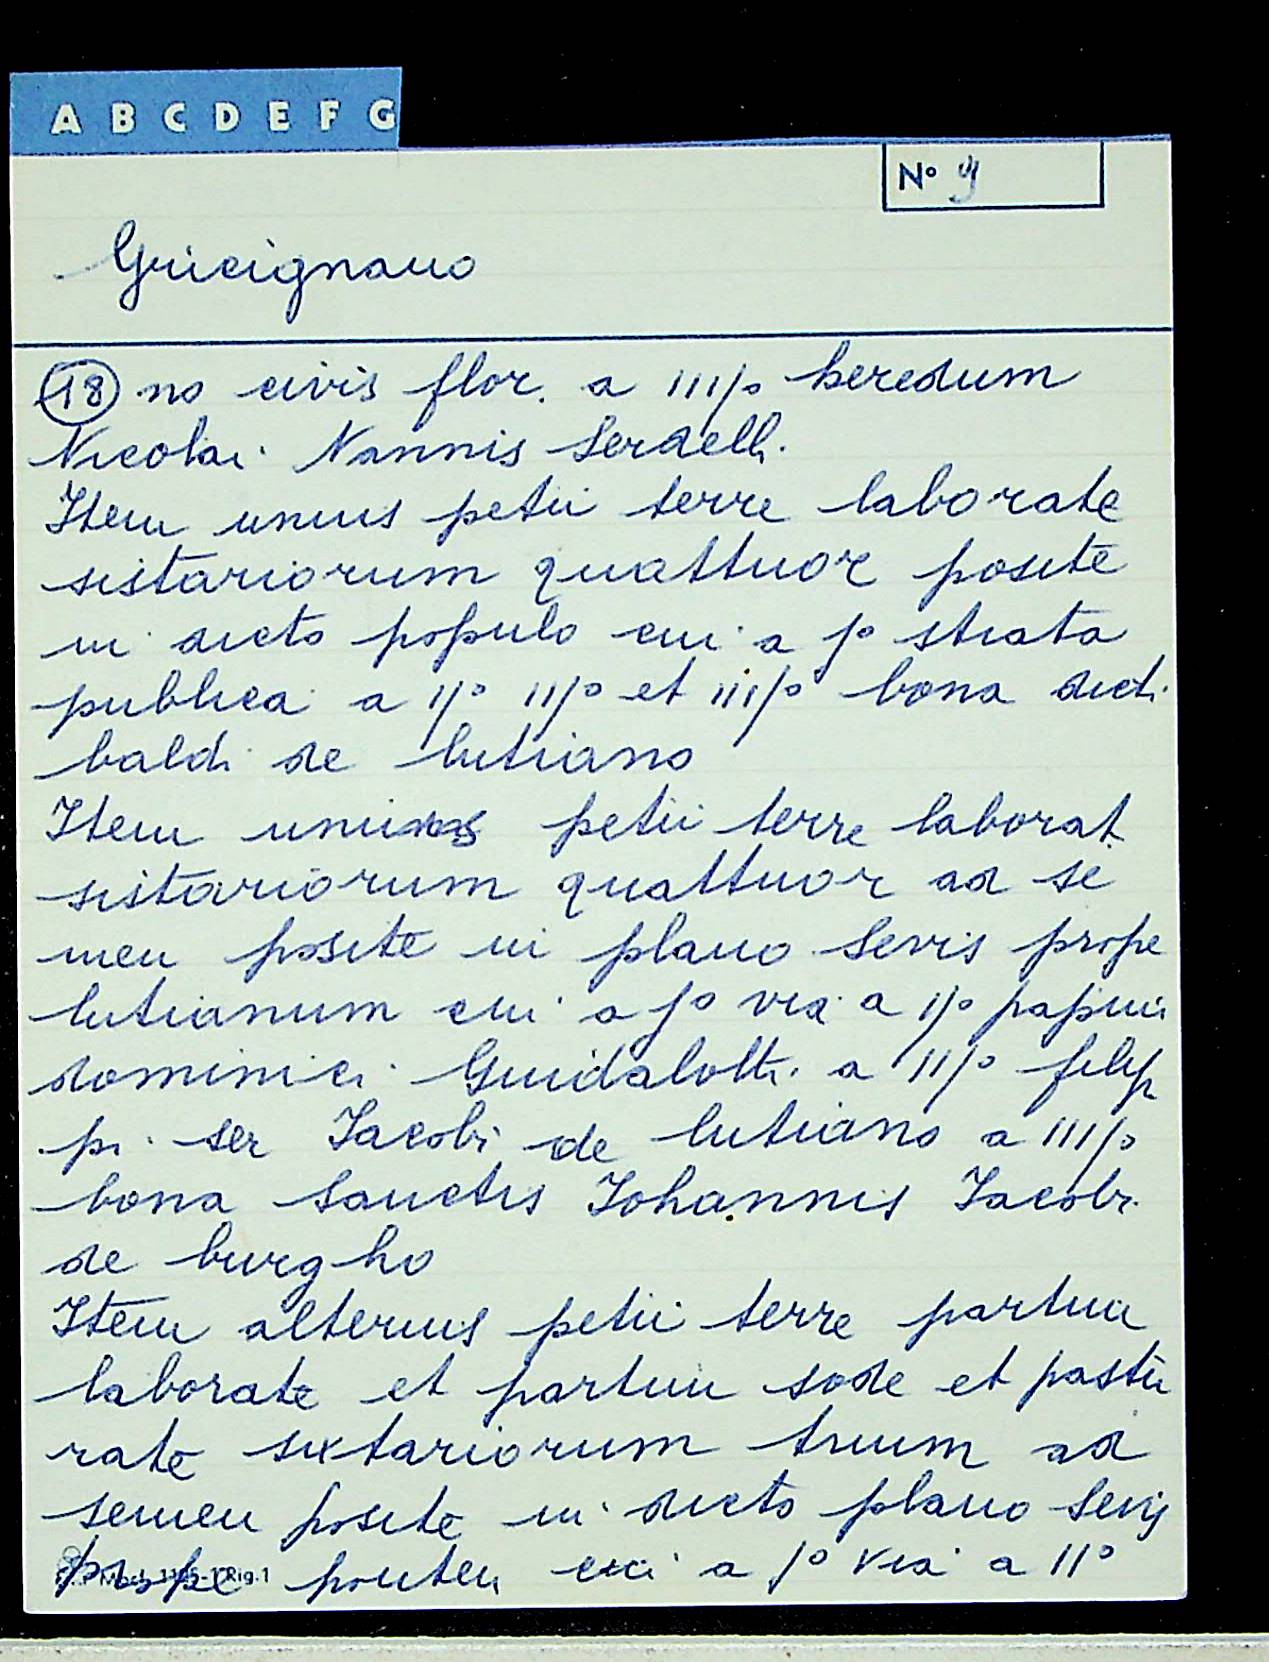 A B C D E F G
N° 9
Gricignano
18 no civis flor. a IIII° heredum
Nicolai Nannis Serdelli
Item unius petii terre laborate
sistariorum quattuor posite
in dicto populo cui a I° strata
publica a II° III° et IIII° bona dicti
baldi de lutiano
Item unius petii terre laborat
sistariorum quattuor ad se
men posite in plano Sevis prope
lutianum cui a I° via a II° papini
dominici Guidalotti a III° filip
pi ser Iacobi de lutiano a IIII°
bona Sanctis Iohannis Iacobi
de burgho
Item alterius petii terre partim
laborate et partim sode et pastu
rate sextariorum trium ad
semen posite in dicto plano Sevis
prope pontem cui a I° via a II°
Mod. 1105-1 Rig.1